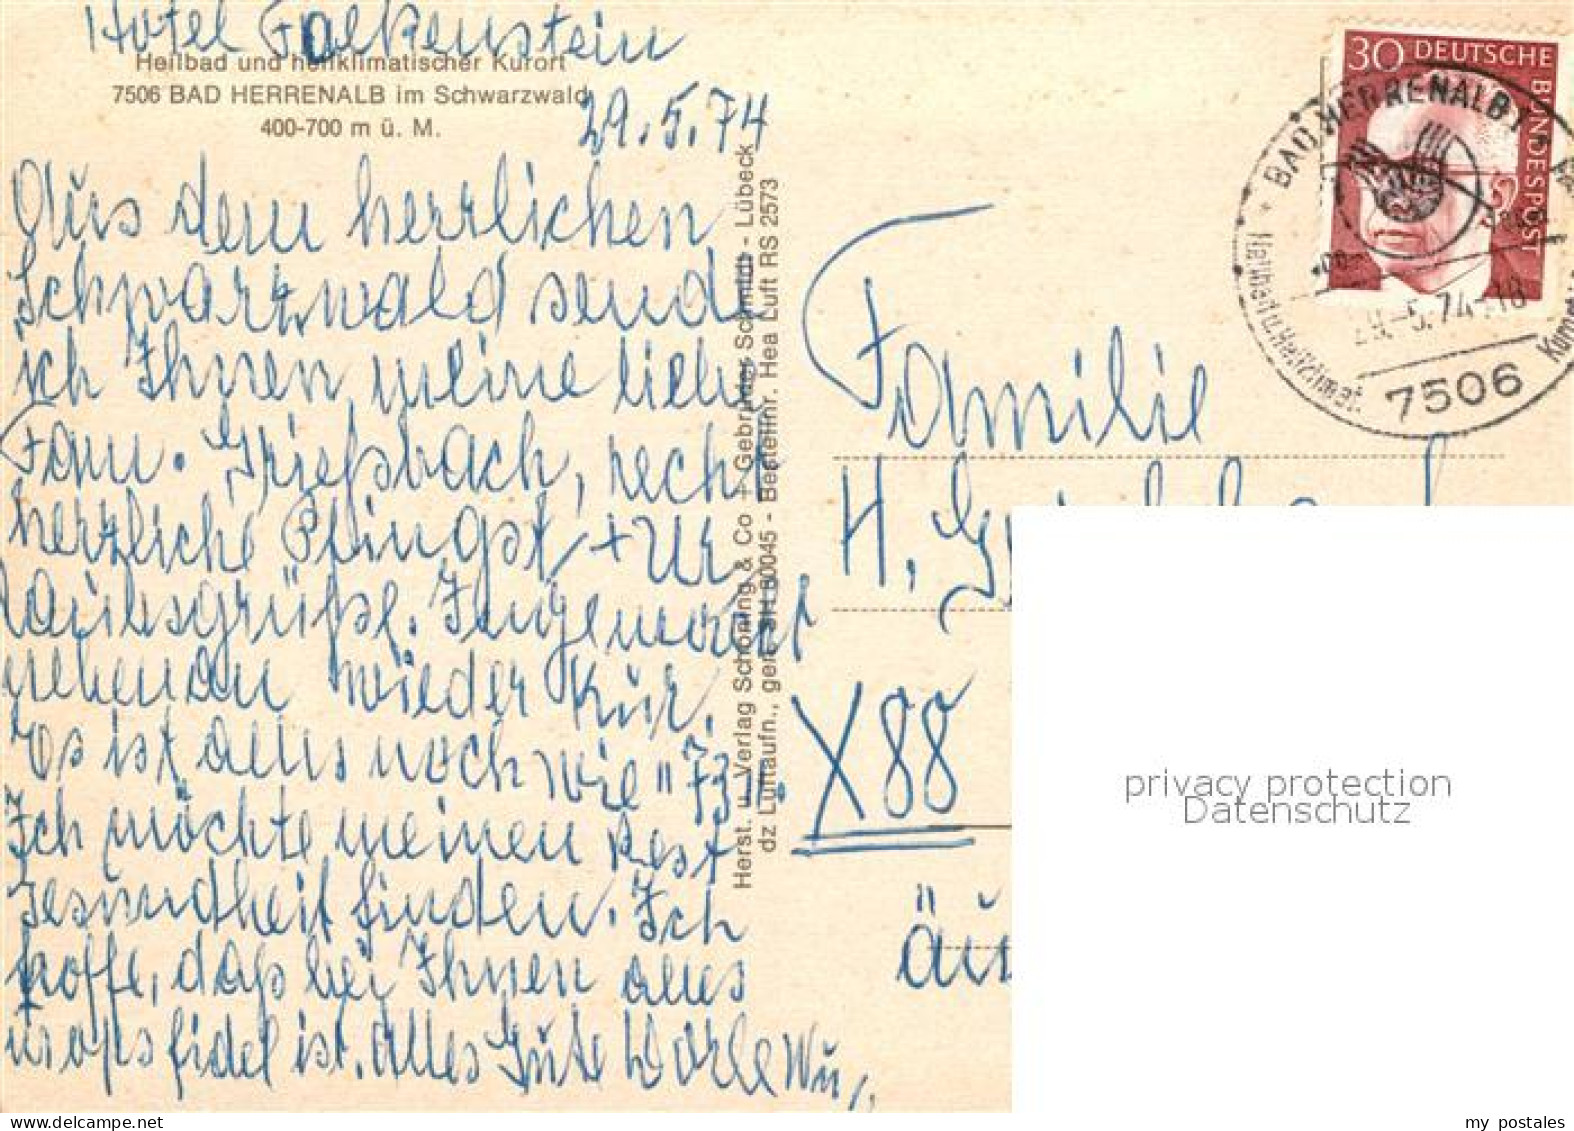 Hotel Falkenstein
Heilbad und heilklimatischer Kurort
7506 BAD HERRENALB im Schwarzwald
400-700 m ü. M.
29.5.74
Aus dem herrlichen
Schwarzwald sende
ich Ihnen meine liebe
Fam. Grießbach, recht
herzliche Pfingst + Ur
laubsgrüße.
nebenan wieder Kür.
Es ist alles noch wie "73".
Ich möchte meinen Rest
Gesundheit finden. Ich
hoffe, daß bei Ihnen alles
fidel ist. Alles Gute
Herst. u. Verlag Schöning & Co + Gebrüder Schmidt - Lübeck
dz Luftaufn., gen. SH 80045 - Bestellnr. Hea Luft RS 2573
30 DEUTSCHE
BUNDESPOST
BAD HERRENALB
29.-5.74-18
7506
Familie
H.
X88
privacy protection
Datenschutz
delcampe.net
my postales